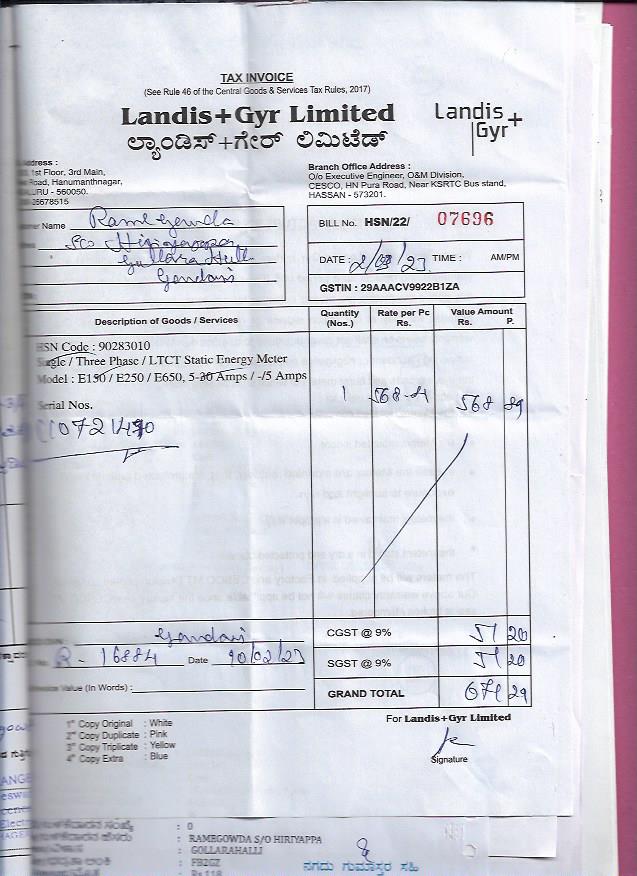 TAX INVOICE
(See Rule 46 of the Central Goods & Services Tax Rules, 2017)
Landis+Gyr Limited
ಲ್ಯಾಂಡಿಸ್+ಗೇರ್ ಲಿಮಿಟೆಡ್
Landis+
Gyr
Address :
1st Floor, 3rd Main,
Road, Hanumanthnagar,
- 560050.
26678515
Branch Office Address :
O/o Executive Engineer, O&M Division,
CESCO, HN Pura Road, Near KSRTC Bus stand,
HASSAN - 573201.
Name Ramegowda
S/o
Gollara Hatti
Gandasi
BILL No. HSN/22/ 07696
DATE : TIME : AM/PM
GSTIN : 29AAACV9922B1ZA
Description of Goods / Services
Quantity (Nos.)
Rate per Pc Rs.
Value Amount Rs. P.
HSN Code : 90283010
Single / Three Phase / LTCT Static Energy Meter
Model : E150 / E250 / E650, 5-30 Amps / -/5 Amps
1 568 89
Serial Nos.
Gandasi
R - 16884 Date
Value (In Words) :
CGST @ 9% 51 20
SGST @ 9% 51 20
GRAND TOTAL 671 29
For Landis+Gyr Limited
Signature
1st Copy Original : White
2nd Copy Duplicate : Pink
3rd Copy Triplicate : Yellow
4th Copy Extra : Blue
: 0
: RAMEGOWDA S/O HIRIYAPPA
: GOLLARAHALLI
: FB2GZ
: Rs 118
ನಗದು ಗುಮಾಸ್ತರ ಸಹಿ